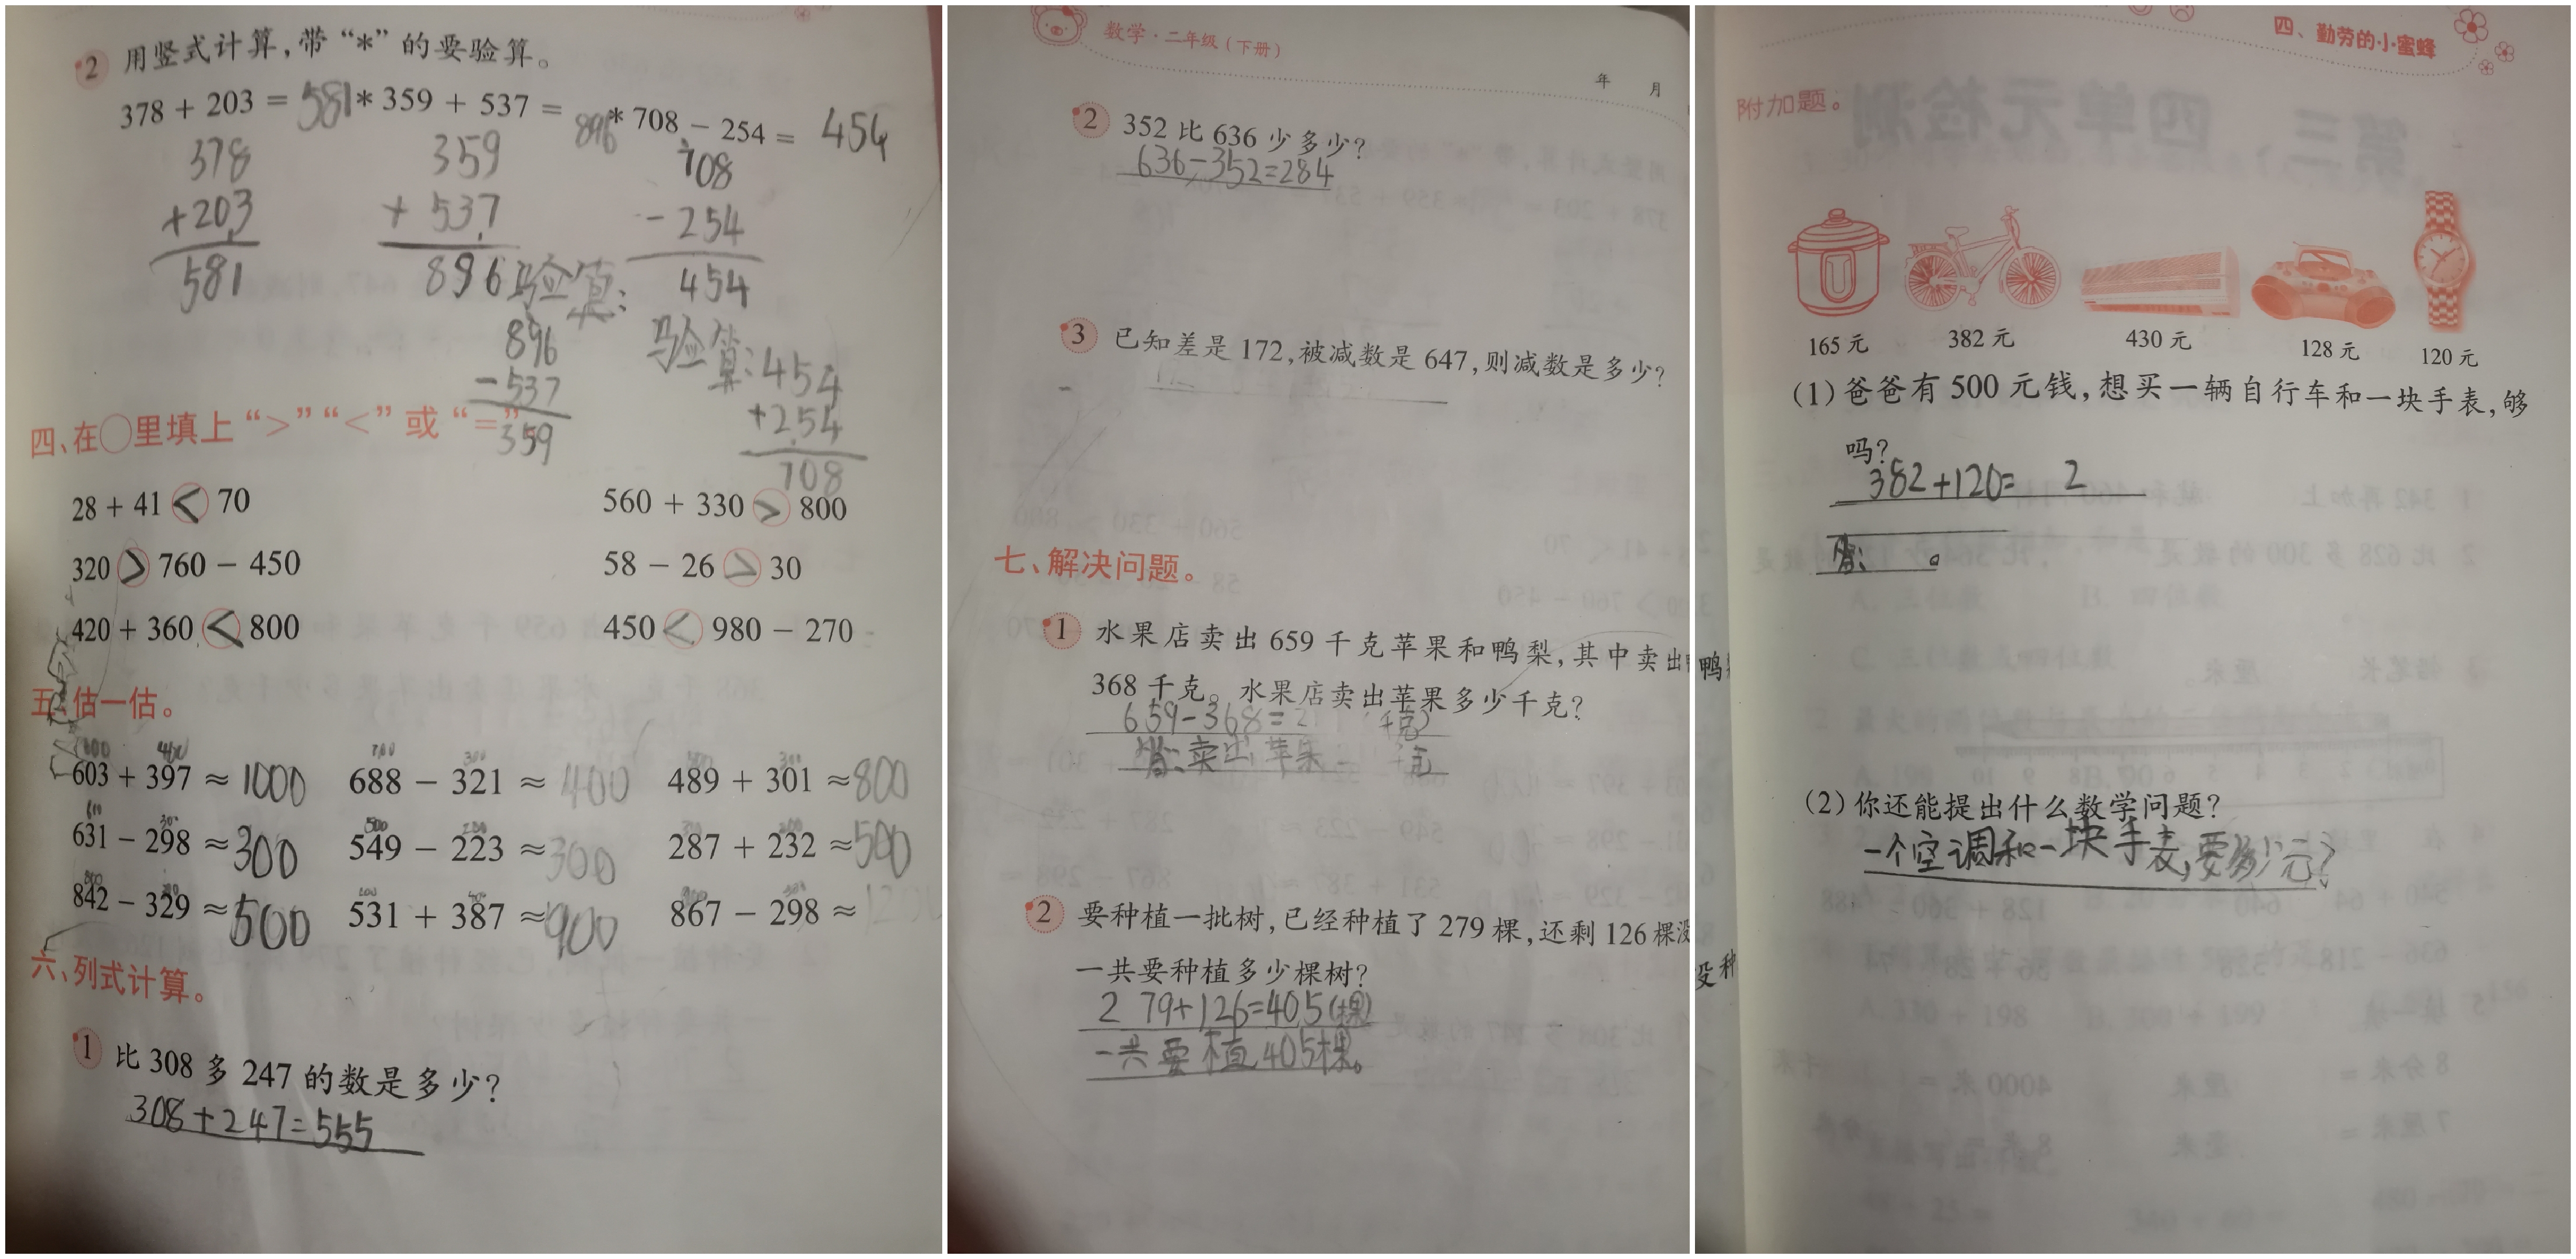 2 用竖式计算,带“*”的要验算。
378 + 203 = 581 * 359 + 537 = 896 * 708 - 254 = 454
378 359 708
+203 + 537 - 254
581 896 454
验算:
896
-537
359
验算:454
+254
708
四、在○里填上“>”“<”或“=”
28 + 41 < 70 560 + 330 > 800
320 > 760 - 450 58 - 26 > 30
420 + 360 < 800 450 < 980 - 270
五、估一估。
600 400 700 300 300
603 + 397 ≈ 1000 688 - 321 ≈ 400 489 + 301 ≈ 800
500 200 200
631 - 298 ≈ 300 549 - 223 ≈ 300 287 + 232 ≈ 500
800
842 - 329 ≈ 500 531 + 387 ≈ 900 867 - 298 ≈
六、列式计算。
1 比 308 多 247 的数是多少?
308+247=555
数学·二年级(下册)
年 月
2 352 比 636 少多少?
636-352=284
3 已知差是 172,被减数是 647,则减数是多少?
七、解决问题。
1 水果店卖出 659 千克苹果和鸭梨,其中卖出鸭
368 千克。水果店卖出苹果多少千克?
659-368=2 (千克)
答:卖出苹果 千克
2 要种植一批树,已经种植了 279 棵,还剩 126 棵没种
一共要种植多少棵树?
279+126=405(棵)
一共要植405棵。
四、勤劳的小蜜蜂
附加题。
165 元 382 元 430 元 128 元 120 元
(1)爸爸有 500 元钱,想买一辆自行车和一块手表,够
吗?
382+120= 2
答: 。
(2)你还能提出什么数学问题?
一个空调和一块手表,要多少元?